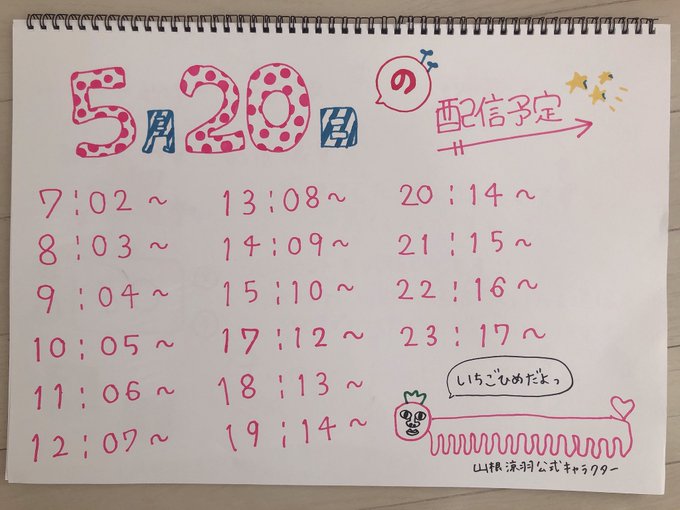 5月20日の
配信予定
7:02~
8:03~
9:04~
10:05~
11:06~
12:07~
13:08~
14:09~
15:10~
17:12~
18:13~
19:14~
20:14~
21:15~
22:16~
23:17~
いちごひめだよっ
山根涼羽公式キャラクター